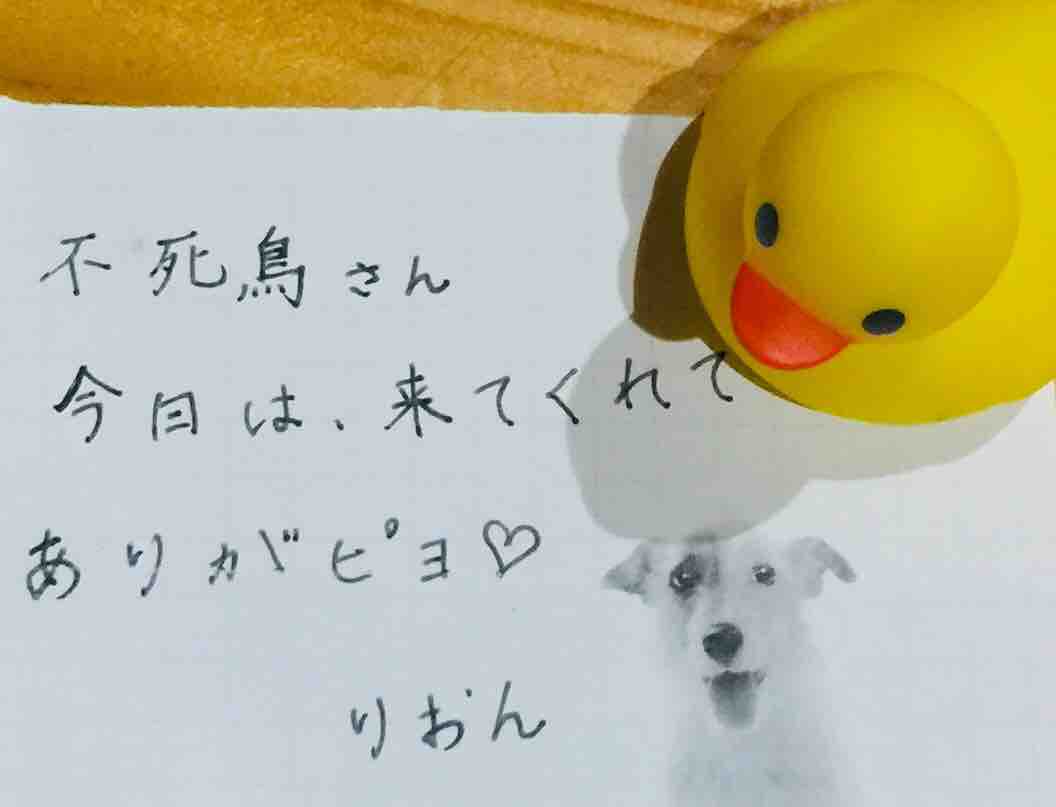 不死鳥さん
今日は、来てくれて
ありがピヨ♡
りおん